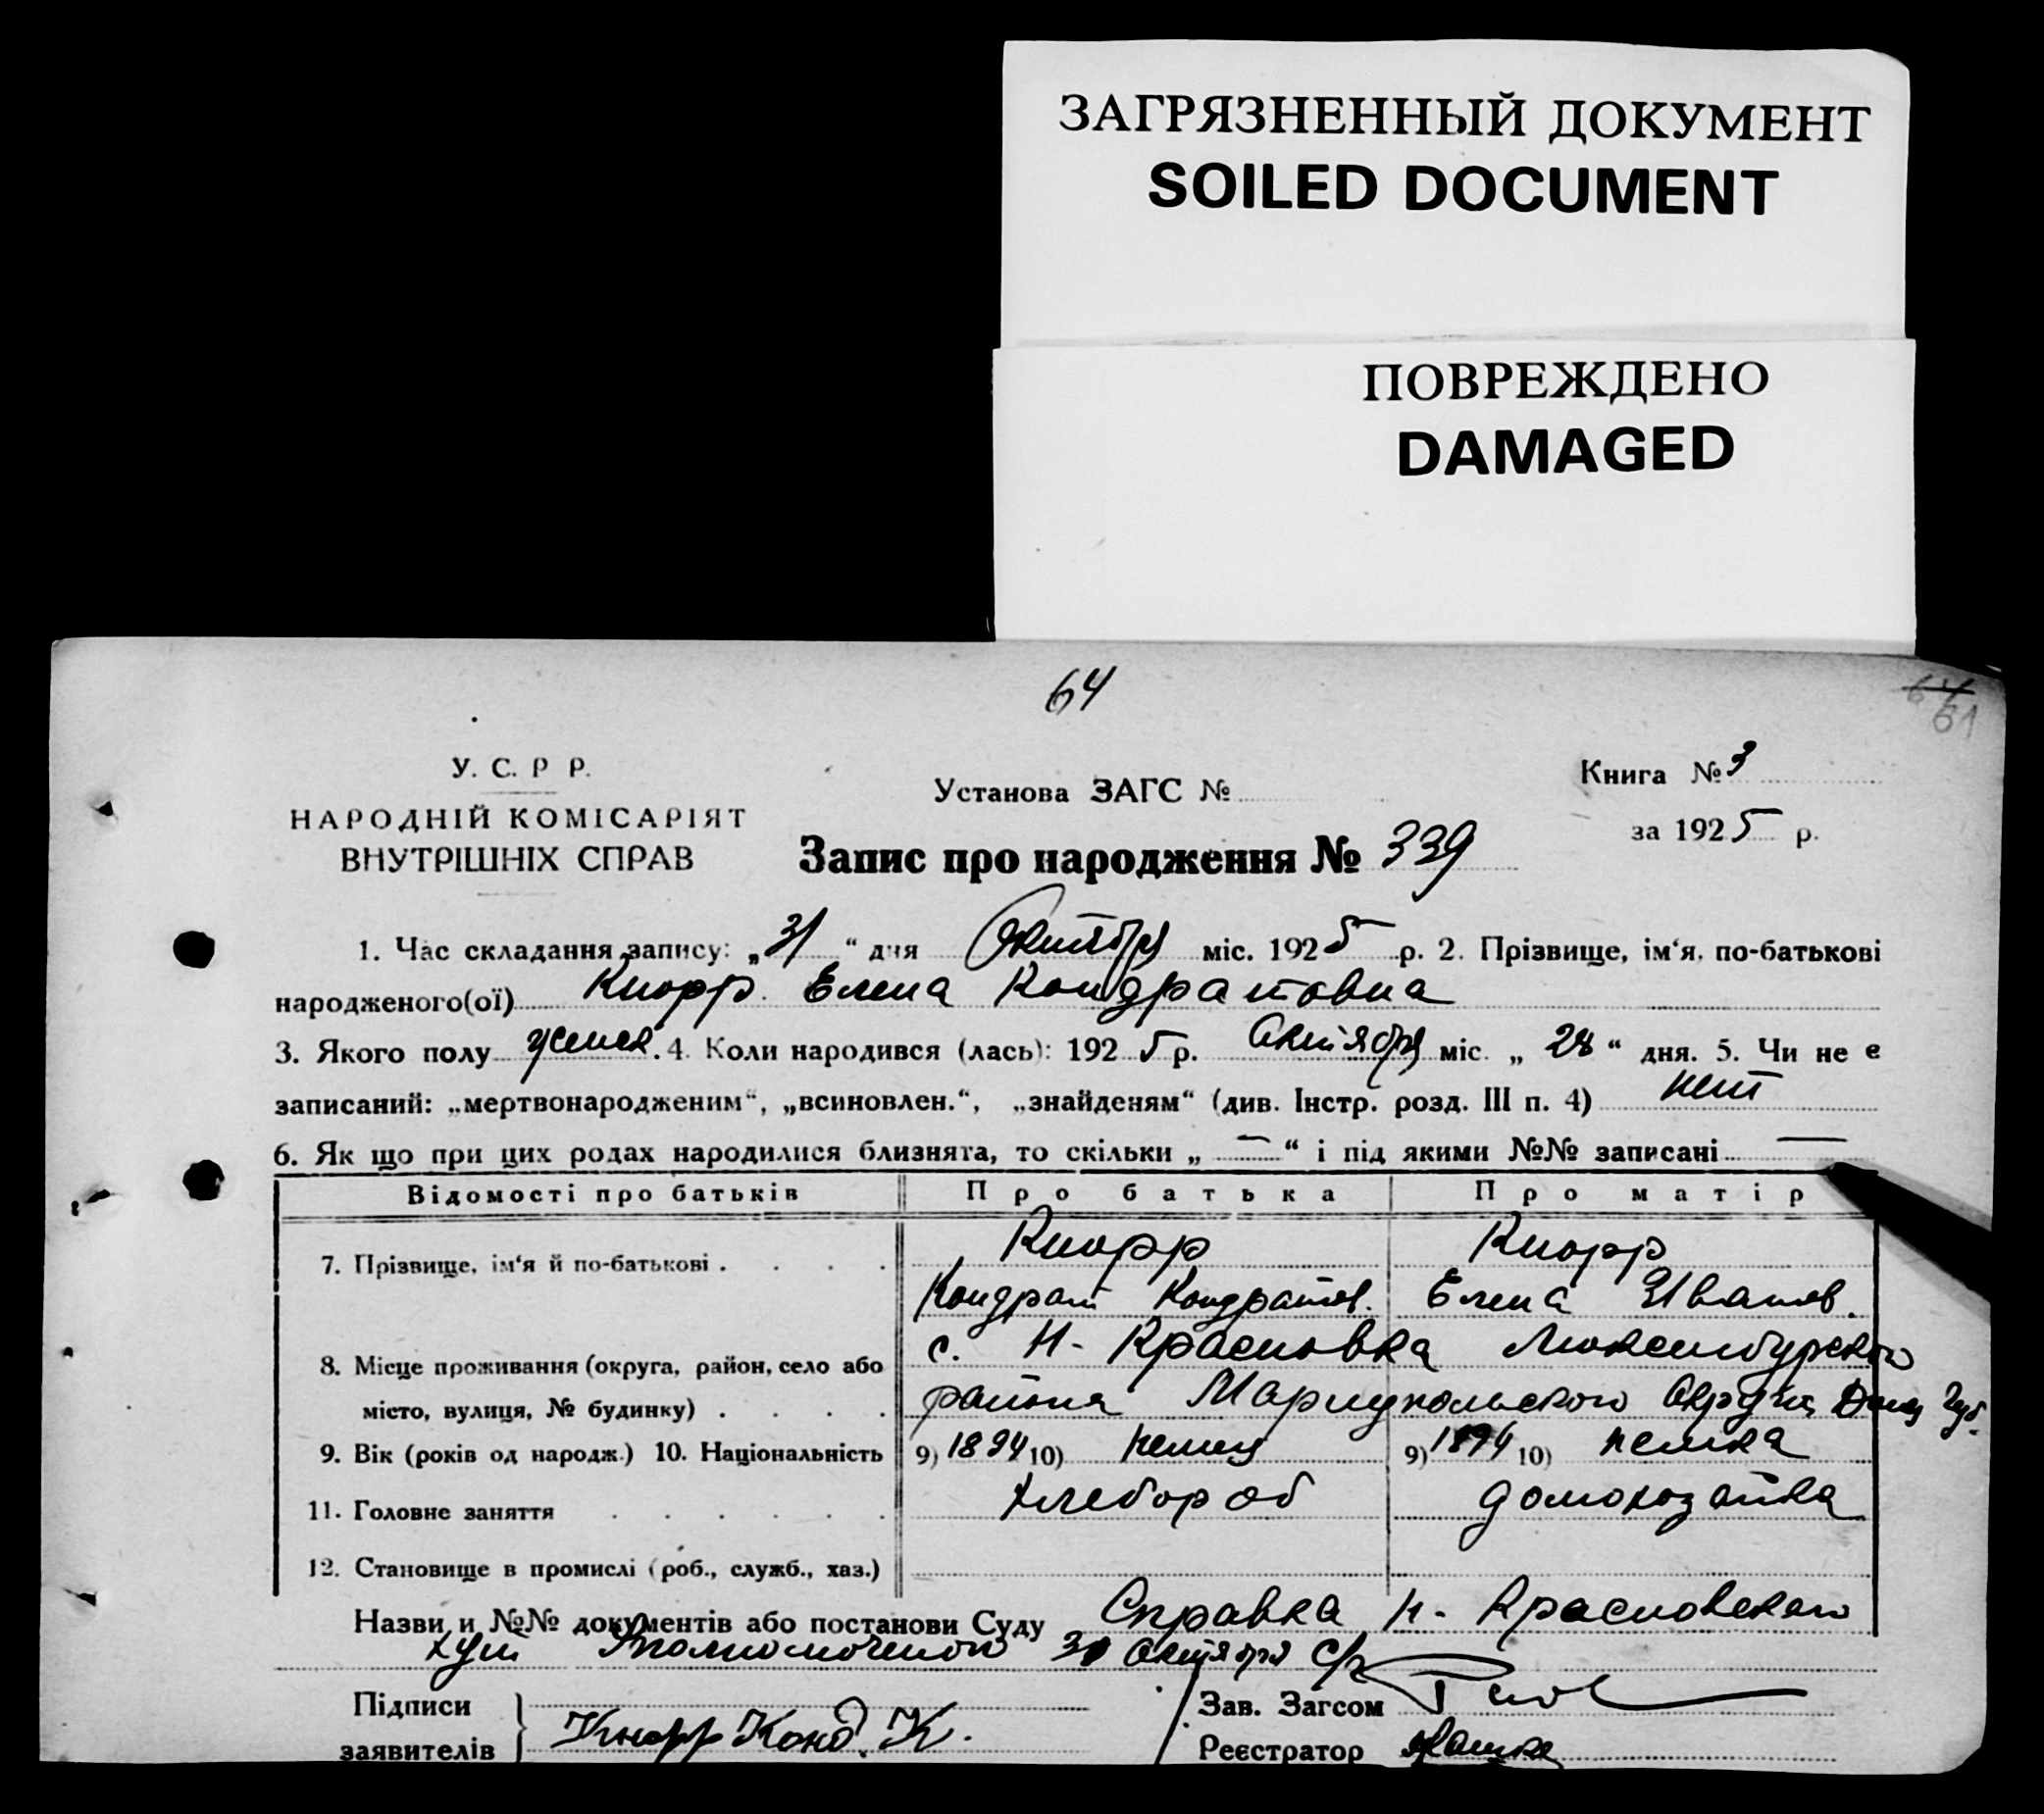 ЗАГРЯЗНЕННЫЙ ДОКУМЕНТ
SOILED DOCUMENT
ПОВРЕЖДЕНО
DAMAGED
64
64
61
У. С. Р Р.
НАРОДНІЙ КОМІСАРІЯТ
ВНУТРІШНІХ СПРАВ
Установа ЗАГС №
Книга № 3
за 1925 р.
Запис про народження № 339
1. Час складання запису: „31“ дня Октября міс. 1925 р. 2. Прізвище, ім‘я, по-батькові
народженого(ої) Кнорр Елена Кондратовна
3. Якого полу женск. 4. Коли народився (лась): 1925 р. Октября міс. „28“ дня. 5. Чи не є
записаний: „мертвонародженим“, „всиновлен.“, „знайденям“ (див. Інстр. розд. III п. 4) нет
6. Як що при цих родах народилися близнята, то скільки „ — “ і під якими №№ записані —
Відомості про батьків Про батька Про матір
7. Прізвище, ім‘я й по-батькові . . . . Кнорр Кнорр
Кондрат Кондратов. Елена Иванов.
8. Місце проживання (округа, район, село або с. Н-Красновка Люксембургского
місто, вулиця, № будинку) . . . . района Мариупольского Округа Донец Губ.
9. Вік (років од народж.) 10. Національність 9) 1894 10) немец 9) 1894 10) немка
11. Головне заняття . . . . . . хлебороб домохозайка
12. Становище в промислі (роб., служб., хаз.)
Назви и №№ документів або постанови Суду Справка Н-Красновского
хут 31 Октября с/г
Підписи
заявителів
Кнорр Конд. К.
Зав. Загсом
Реєстратор